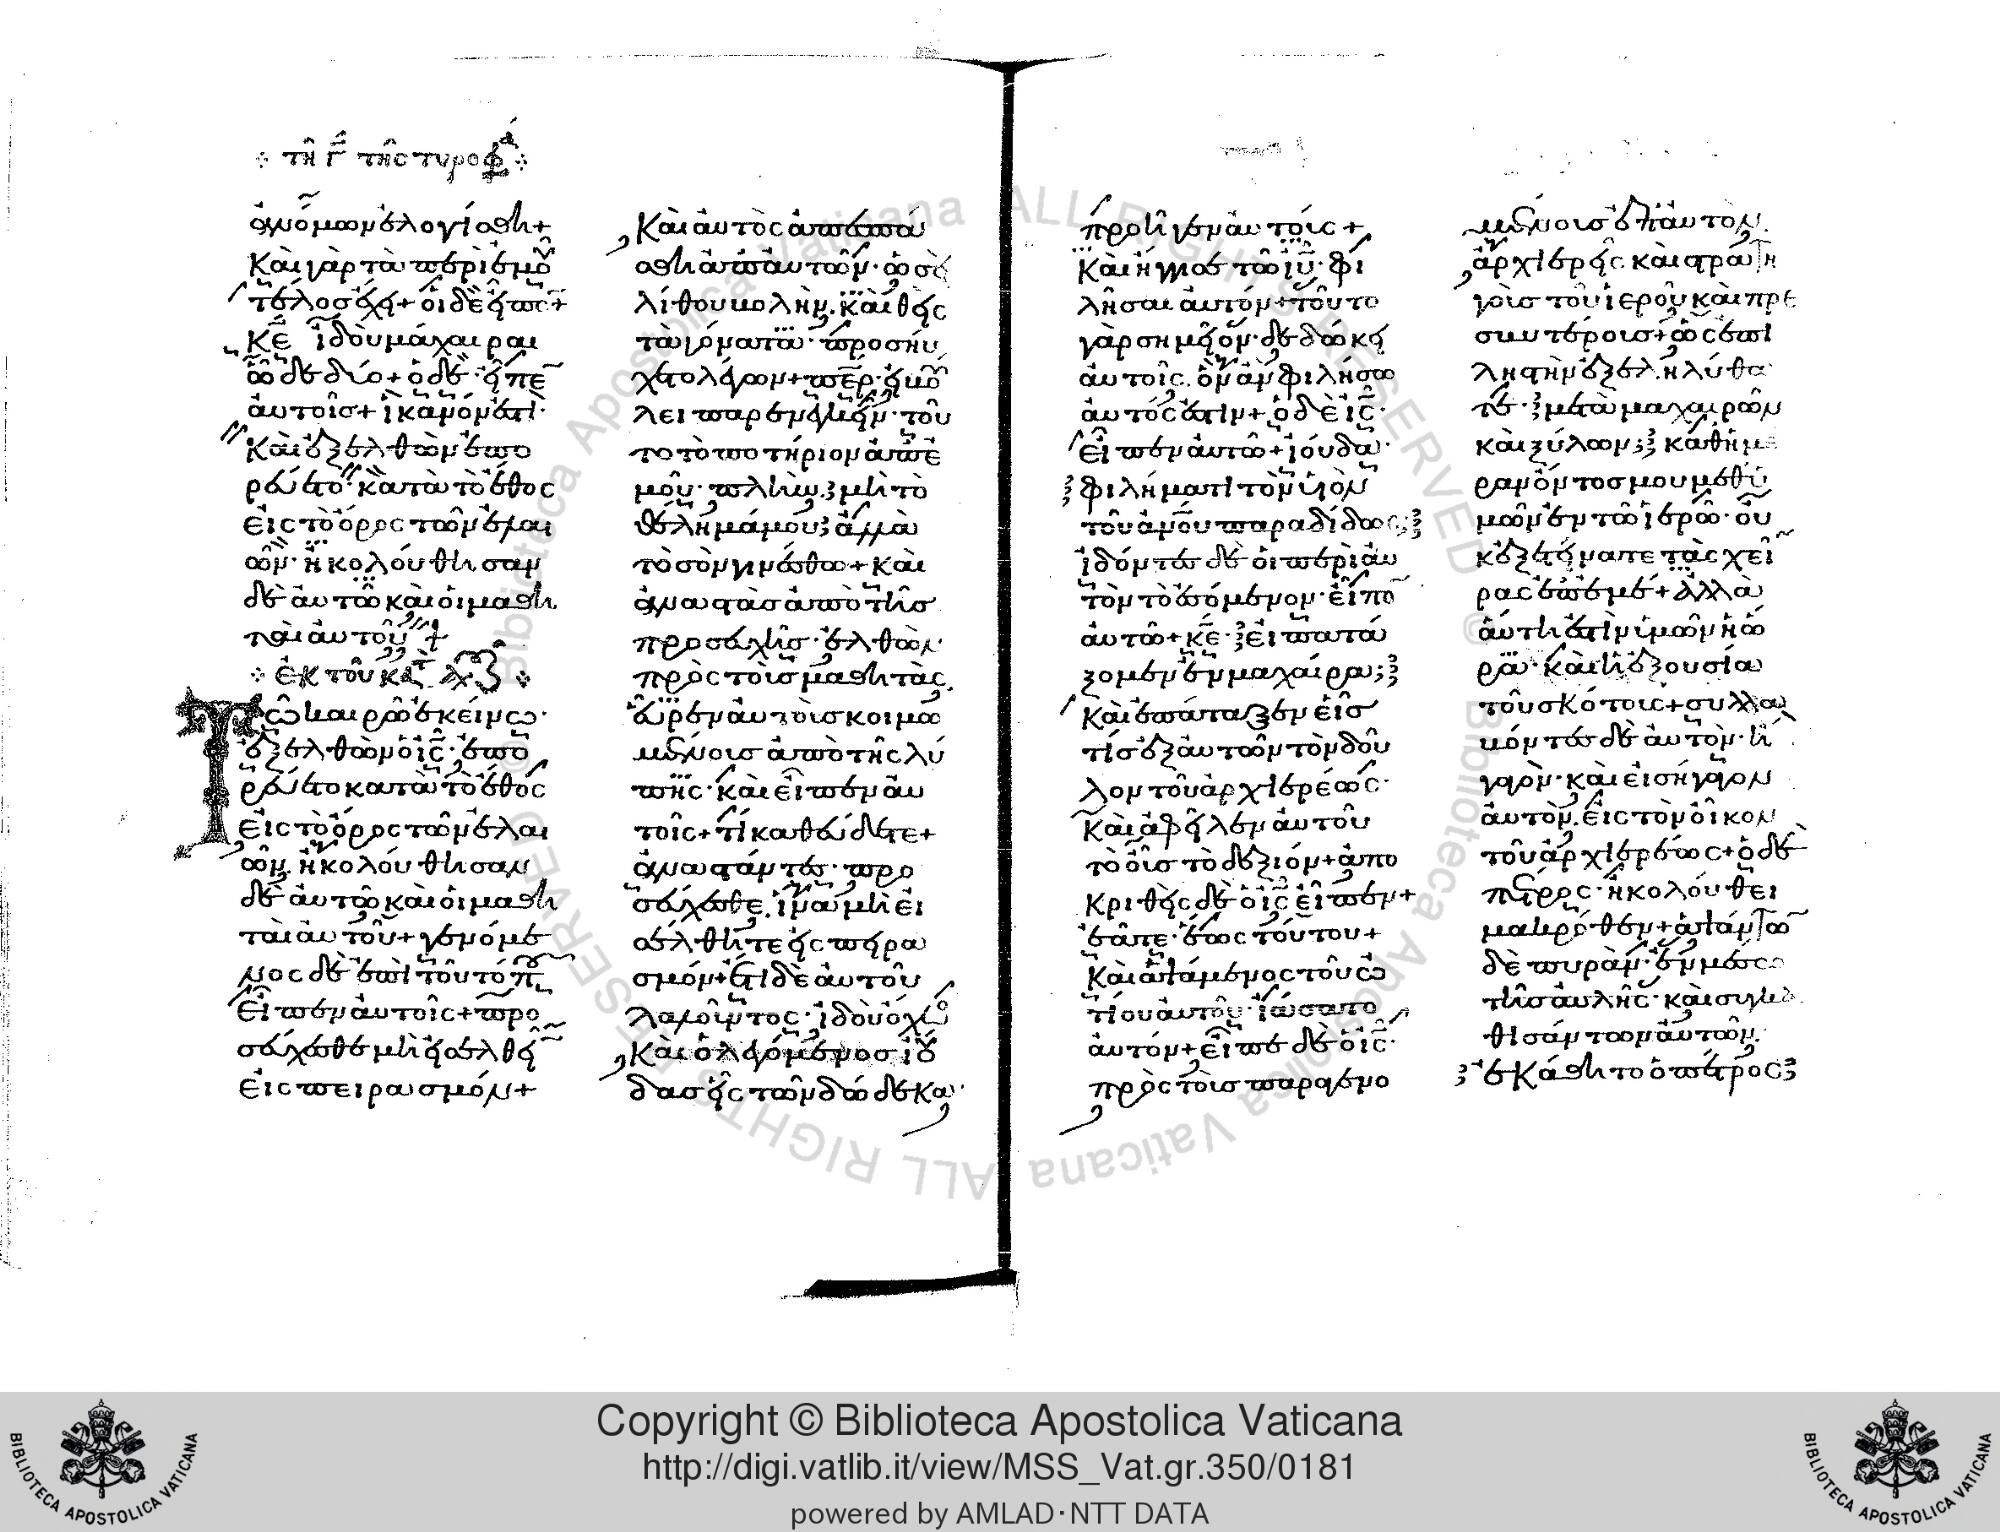 τῆ Γ τῆς τυροφά
ἀνόμων ἐλογίσθη+
Καὶ γὰρ τὰ περὶ ἐμοῦ
τέλος ἔχει+ οἱ δὲ εἶπον+
Κε̄ ἰδοὺ μάχαιραι
ὧδε δύο+ ὁ δὲ εἶπε
αὐτοῖς+ ἱκανόν ἐστι·
Καὶ ἐξελθὼν ἐπο
ρεύετο κατὰ τὸ ἔθος
εἰς τὸ ὄρος τῶν ἐλαι
ῶν· ἠκολούθησαν
δὲ αὐτῶ καὶ οἱ μαθη
ταὶ αὐτοῦ+
ἐκ τοῦ κα
Τῶ καιρῶ ἐκείνω·
ἐξελθὼν ὁ ις̄· ἐπο
ρεύετο κατὰ τὸ ἔθος
εἰς τὸ ὄρος τῶν ἐλαι
ῶν· ἠκολούθησαν
δὲ αὐτῶ καὶ οἱ μαθη
ταὶ αὐτοῦ+ γενόμε
νος δὲ ἐπὶ τοῦ τόπου
εἶπεν αὐτοῖς+ προ
σεύχεσθε μὴ εἰσελθεῖν
εἰς πειρασμόν+
Καὶ αὐτὸς ἀπεσπά
σθη ἀπ' αὐτῶν· ὡσεὶ
λίθου βολήν· καὶ θεὶς
τὰ γόνατα· προσηύ
χετο λέγων+ περ εἰ βού
λει παρένεγκεῖν· τοῦ
το τὸ ποτήριον ἀπ' ἐ
μοῦ· πλὴν μὴ τὸ
θέλημά μου ἀλλὰ
τὸ σὸν γινέσθω+ Καὶ
ἀναστὰς ἀπὸ τῆς
προσευχῆς· ἐλθὼν
πρὸς τοὺς μαθητὰς·
εὗρεν αὐτοὺς κοιμω
μένους ἀπὸ τῆς λύ
πης· καὶ εἶπεν αὐ
τοῖς+ τί καθεύδετε+
ἀναστάντες· προ
σεύχεσθε· ἵνα μὴ εἰ
σέλθητε εἰς πειρα
σμόν+ ἔτι δὲ αὐτοῦ
λαλοῦντος· ἰδοὺ ὄχλος
Καὶ ὁ λεγόμενος ἰού
δας εἷς τῶν δώδεκα·
προῆγεν αὐτούς+
Καὶ ἤγγισε τῶ ιῡ· φι
λῆσαι αὐτόν+ τοῦτο
γὰρ σημεῖον· δεδώκει
αὐτοῖς· ὃν ἂν φιλήσω
αὐτός ἐστιν+ ὁ δὲ ις̄·
εἶπεν αὐτῶ+ ἰούδα·
φιλήματι τὸν υἱὸν
τοῦ ἀνου παραδίδως;
ἰδόντες δὲ οἱ περὶ αὐ
τὸν τὸ ἐσόμενον· εἶπον
αὐτῶ+ κε̄· εἰ πατά
ξομεν ἐν μαχαίρα;
Καὶ ἐπάταξεν εἷς
τίς ἐξ αὐτῶν τὸν δοῦ
λον τοῦ ἀρχιερέως·
Καὶ ἀφεῖλεν αὐτοῦ
τὸ οὖς τὸ δεξιόν+ ἀπο
κριθεὶς δὲ ὁ ις̄ εἶπεν+
ἐᾶτε· ἕως τούτου+
Καὶ ἁψάμενος τοῦ ὠ
τίου αὐτοῦ· ἰάσατο
αὐτόν+ εἶπε δὲ ὁ ις̄·
πρὸς τοὺς παραγενο
μένους ἐπ' αὐτὸν·
ἀρχιερεῖς καὶ στρατη
γοὺς τοῦ ἱεροῦ καὶ πρε
σβυτέρους+ ὡς ἐπὶ
λῃστὴν ἐξεληλύθα
τε· μετὰ μαχαιρῶν
καὶ ξύλων; καθ' ἡμέ
ραν ὄντος μου μεθ' ὑ
μῶν ἐν τῶ ἱερῶ· οὐ
κ ἐξετείνατε τὰς χεῖ
ρας ἐπ' ἐμέ+ ἀλλὰ
αὕτη ἐστὶν ὑμῶν ἡ ὥ
ρα· καὶ ἡ ἐξουσία
τοῦ σκότους+ συλλα
βόντες δὲ αὐτὸν· ἤ
γαγον· καὶ εἰσήγαγον
αὐτὸν· εἰς τὸν οἶκον
τοῦ ἀρχιερέως+ ὁ δὲ
πέτρος· ἠκολούθει
μακρόθεν+ ἁψάντων
δὲ πυρὰν· ἐν μέσω
τῆς αὐλῆς· καὶ συγκα
θισάντων αὐτῶν·
ἐκάθητο ὁ πέτρος
Copyright © Biblioteca Apostolica Vaticana
http://digi.vatlib.it/view/MSS_Vat.gr.350/0181
powered by AMLAD·NTT DATA